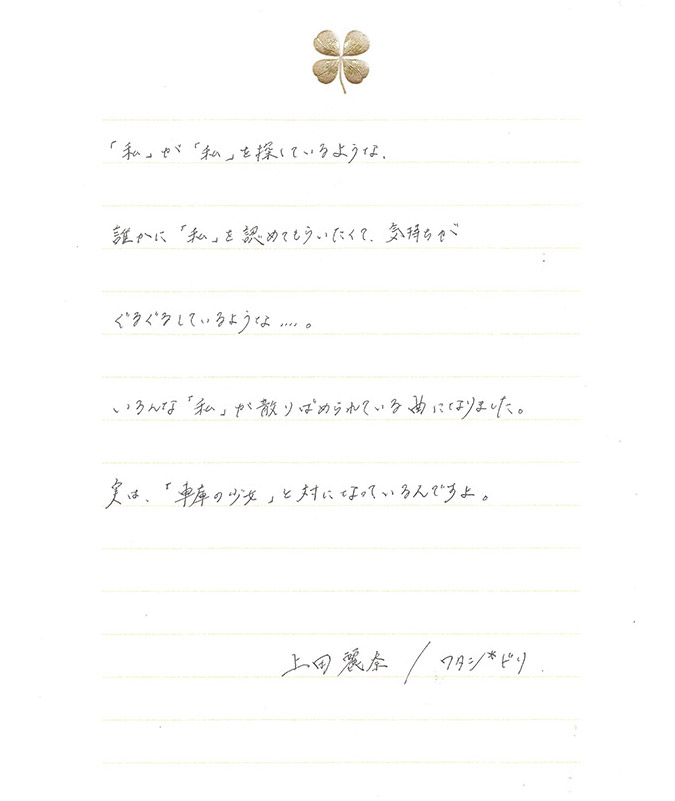 「私」が「私」を探しているような、
誰かに「私」を認めてもらいたくて、気持ちが
ぐるぐるしているような....。
いろんな「私」が散りばめられている曲になりました。
実は、「車庫の少女」と対になっているんですよ。
上田麗奈 / ワタシ*ドリ